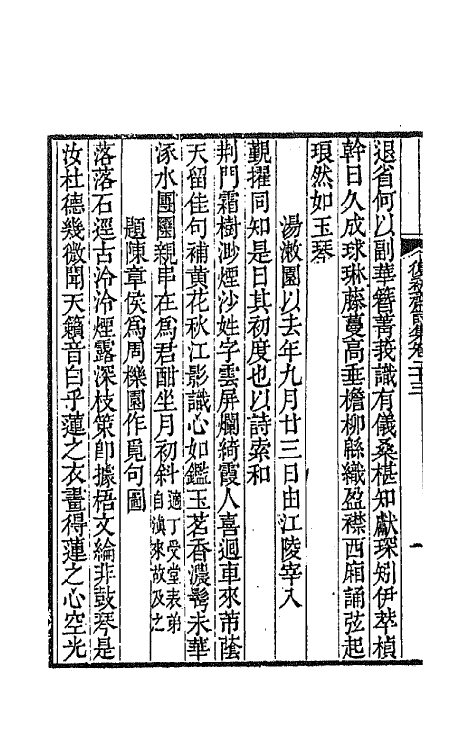 復初齋詩集卷二十三
一
退省何以副華簪菁莪識有儀桑椹知獻琛矧伊萃楨
幹日久成球琳藤蔓高垂檐柳緜織盈襟西廂誦弦起
琅然如玉琴
湯漱園以去年九月廿三日由江陵宰入
覲擢同知是日其初度也以詩索和
荆門霜樹渺煙沙姓字雲屏爛綺霞人喜迴車來芾蔭
天留佳句補黃花秋江影識心如鑑玉茗香濃鬢未華
涿水團圞親串在爲君酣坐月初斜
適丁受堂表弟
自滇來故及之
題陳章侯爲周櫟園作覓句圖
落落石逕古泠泠煙露深枝策卽據梧文綸非鼓琴是
汝杜德幾微聞天籟音白乎蓮之衣畫得蓮之心空光